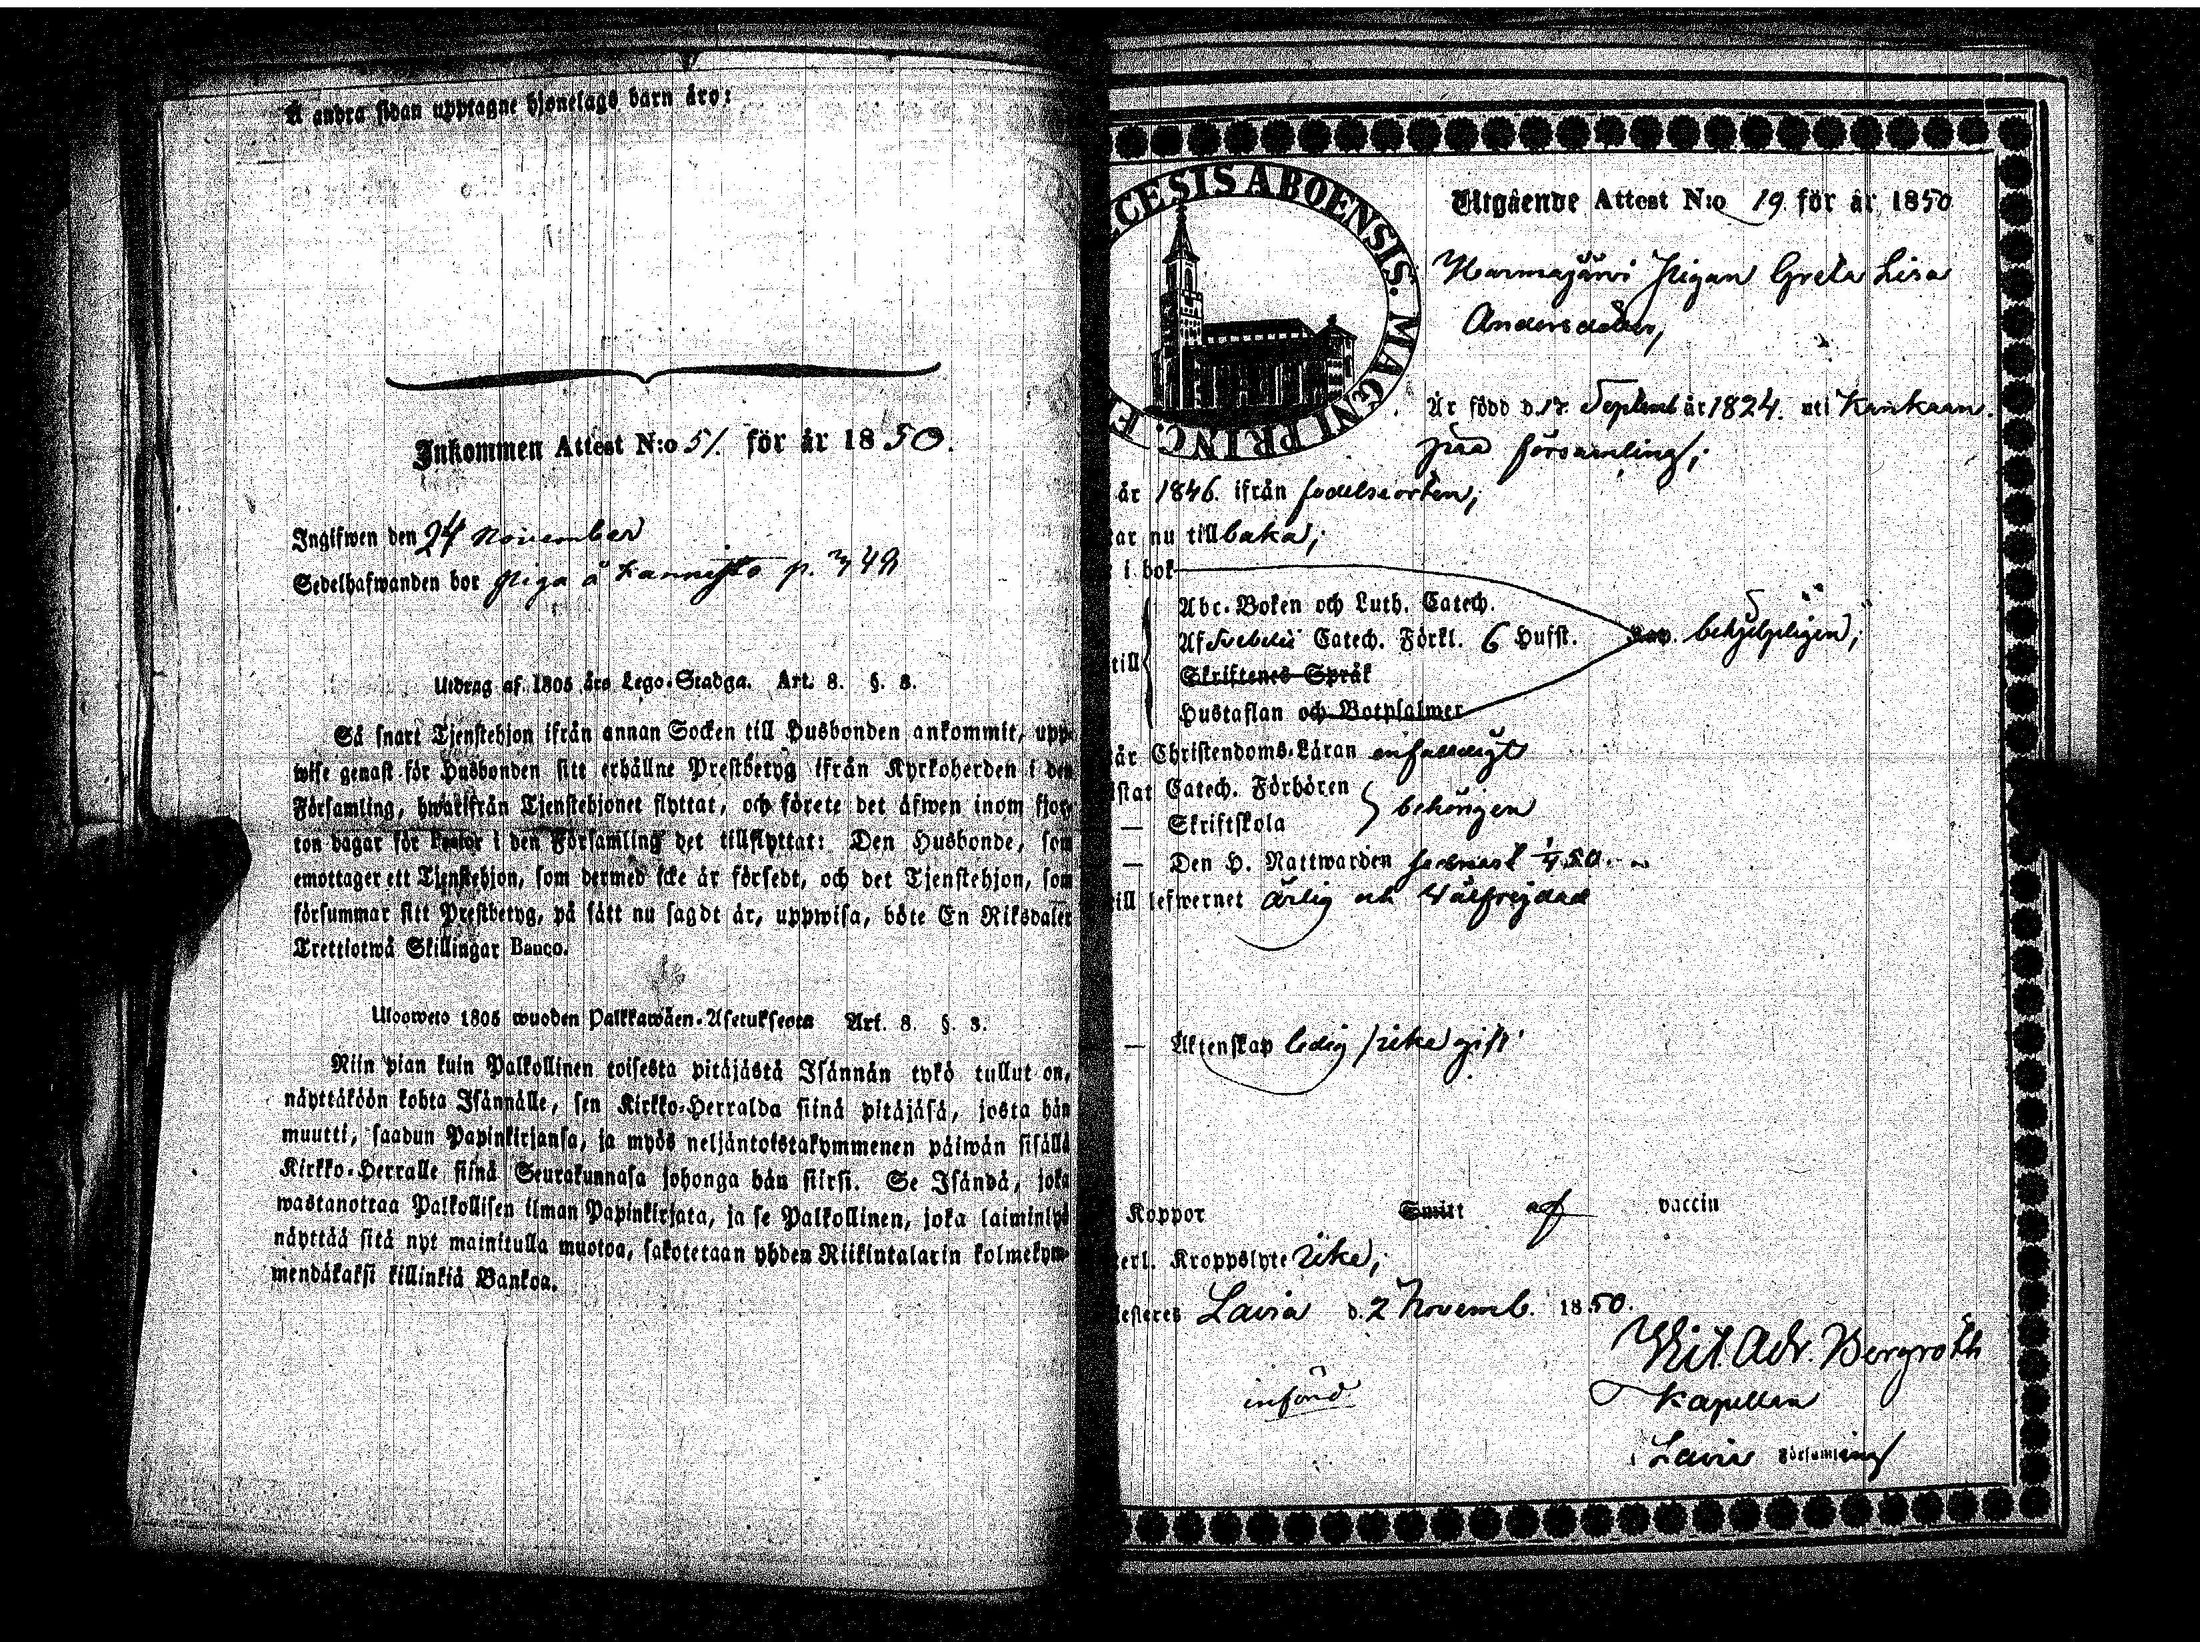 Å andra sidan upptagne hjonelags barn äro:
Inkommen Attest N:o 51. för år 1850.
Ingifwen den 24 November
Sedelhafwanden bor Piga å Kannisto p. 349
Utdrag af 1805 års Lego-Stadga. Art. 8. §. 3.
Så snart Tjenstehjon ifrån annan Socken till Husbonden ankommit, upp-
wise genast för Husbonden sitt erhållne Prestbetyg ifrån Kyrkoherden i den
Församling, hwarifrån Tjenstehjonet flyttat, och förete det äfwen inom fjor-
ton dagar för Pastor i den Församling det tillflyttat: Den Husbonde, som
emottager ett Tjenstehjon, som dermed icke är försedt, och det Tjenstehjon, som
försummar sitt Prestbetyg, på sätt nu sagdt är, uppwisa, böte En Riksdaler
Trettiotwå Skillingar Banco.
Ulosweto 1805 wuoden Palkkawäen-Asetuksesta Art. 8. §. 3.
Niin pian kuin Palkollinen toisesta pitäjästä Isännän tykö tullut on,
näyttäköön kohta Isännälle, sen Kirkko-Herralda siinä pitäjäsä, josta hän
muutti, saadun Papinkirjansa, ja myös neljäntoistakymmenen päiwän sisällä
Kirkko-Herralle siinä Seurakunnasa johonga hän siirsi. Se Isändä, joka
wastanottaa Palkollisen ilman Papinkirjata, ja se Palkollinen, joka laiminlyö
näyttää sitä nyt mainitulla muotoa, sakotetaan yhden Riikintalarin kolmekym-
mendäkaksi killinkiä Bankoa.
CESIS ABOENSIS. MAGNI PRINC. F
Utgående Attest N:o 19 för år 1850
Harmajärvi Pigan Greta Lisa
Andersdotter,
Är född d. 17. Septemb år 1824. uti Kankaan-
pää församling;
år 1846. ifrån födelseorten,
tar nu tillbaka;
i bok
Abc-Boken och Luth. Catech.
Af Svebelii Catech. Förkl. 6 Hufst. behjelpligen;
till
Skriftenes Språk
Hustaflan och Botpsalmer
är Christendoms-Läran enfaldigt
istat Catech. Förhören
behörigen
— Skriftskola
— Den H. Nattwarden sednast 1/9 50.
till lefwernet ärlig och välfrejdad
— Äktenskap ledig /icke gift
Koppor Smitt af vaccin
terl. Kroppslyte icke;
testeres Lavia d. 2 Novemb. 1850.
Vit. Adr. Bergroth
införd
Kapellan
i Lavia församling